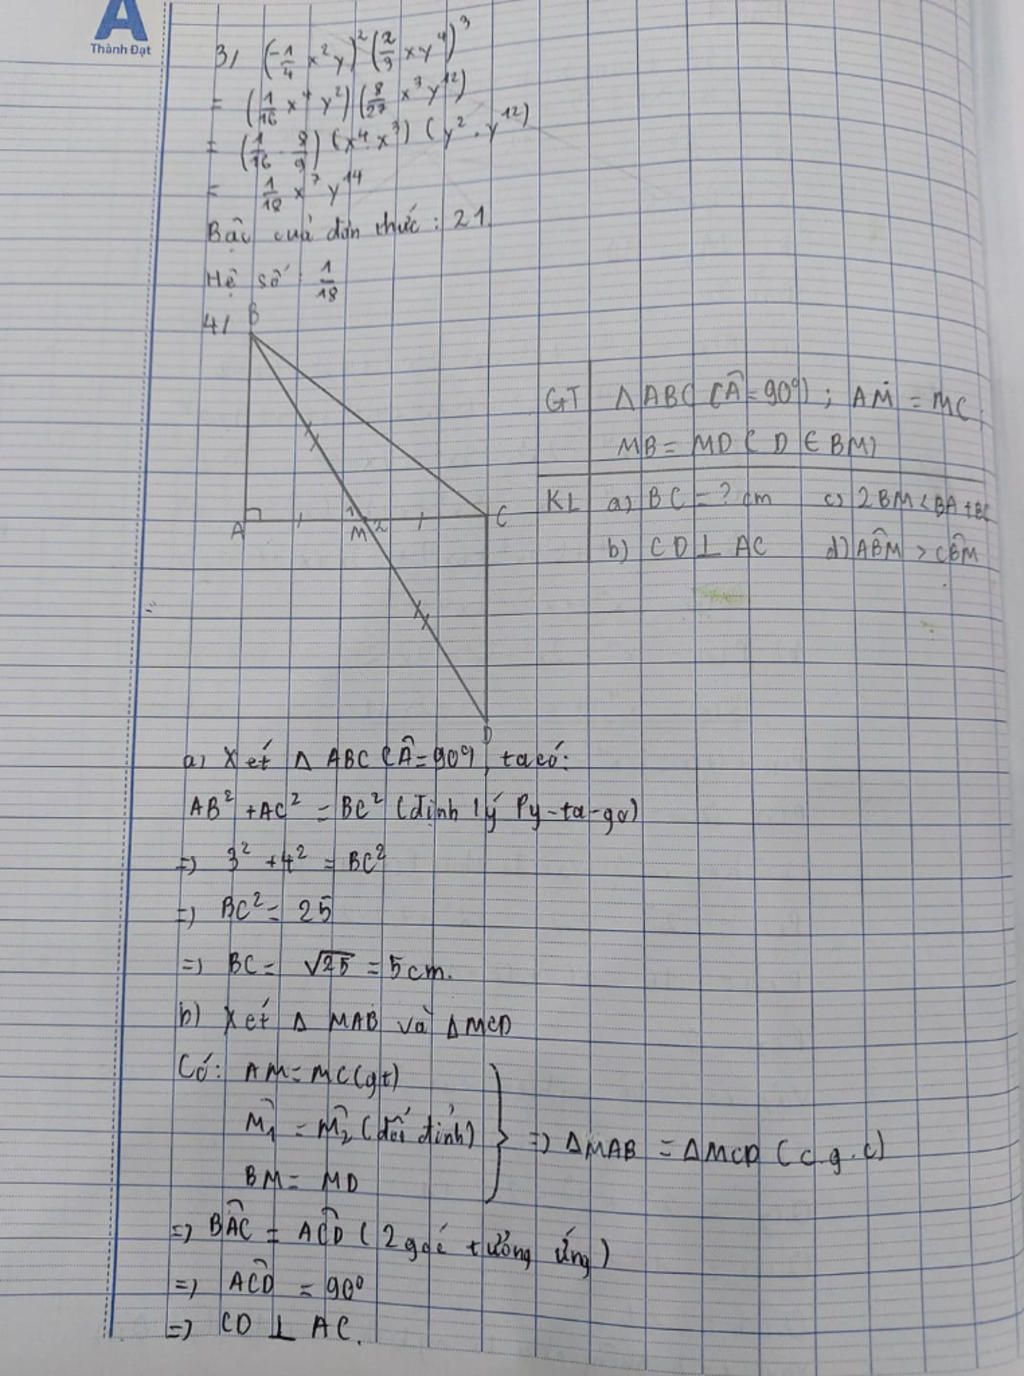 A
Thành Đạt
3) (-1/4 x²y)² (2/3 xy⁴)³
= (1/16 x⁴ y²) (8/27 x³ y¹²)
= (1/16 · 8/9) (x⁴ x³) (y² . y¹²)
= 1/18 x⁷ y¹⁴
Bậc của đơn thức : 21
Hệ số : 1/18
4)
B
A
1
M 2
C
D
GT Δ ABC (Â = 90°) ; AM = MC
MB = MD ( D ∈ BM)
KL a) BC = ? cm c) 2BM < BA + BC
b) CD ⊥ AC d) ABM̂ > CBM̂
a) Xét Δ ABC (Â = 90°), ta có:
AB² + AC² = BC² (định lý Py-ta-go)
=> 3² + 4² = BC²
=> BC² = 25
=> BC = √25 = 5 cm.
b) Xét Δ MAB và Δ MCD
Có: AM = MC (gt)
M̂₁ = M̂₂ (đối đỉnh)
BM = MD
=> ΔMAB = ΔMCD (c.g.c)
=> BÂC = AĈD ( 2 góc tương ứng)
=> AĈD = 90°
=> CD ⊥ AC.